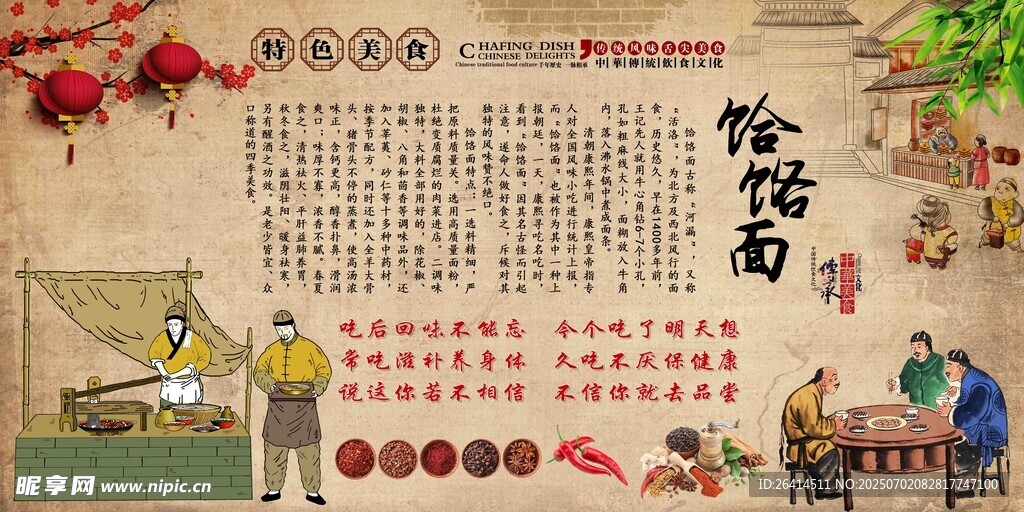 特色美食
CHAFING DISH
CHINESE DELIGHTS
Chinese traditional food culture 千年历史 一脉相承
传统风味舌尖美食
中華傳統飲食文化
饸饹面
中国传统饮食文化
传承
中华美食
饸饹面古称“河漏”，又称
“活洛”，为北方及西北风行的面
食，历史悠久，早在1400多年前，
王记先人就用牛心角钻6-7个小孔，
孔如粗麻线大小，面糊放入牛角
内，落入沸水锅中煮成面条。
清朝康熙年间，康熙皇帝指专
人对全国风味小吃进行统计上报，
而“饸饹面”也被作为其中一种上
报朝廷，一天，康熙寻吃名吃时，
看到“饸饹面”因其名古怪而引起
注意，遂命人做好食之，斥候对其
独特的风味赞不绝口。
饸饹面特点：一选料精细，严
把原料质量关。选用高质量面粉，
杜绝变质腐烂的肉菜进店。二调味
独特，大料全部用好的，除花椒、
胡椒、八角和茴香等调味品外，还
加入荜荑、砂仁等十多种中药材，
按季节配方，同时还加入全羊大骨
头、猪骨头不停的蒸煮，使高汤浓
味正，含钙更高，醇香扑鼻，滑润
爽口；味厚不寡，浓香不腻。春夏
食之，清热祛火、平肝益肺养胃，
秋冬食之，滋阴壮阳、暖身祛寒，
另有醒酒之功效。是老少皆宜、众
口称道的四季美食。
吃后回味不能忘 今个吃了明天想
常吃滋补养身体 久吃不厌保健康
说这你若不相信 不信你就去品尝
昵享网 www.nipic.cn
ID:26414511 NO:20250702082817747100